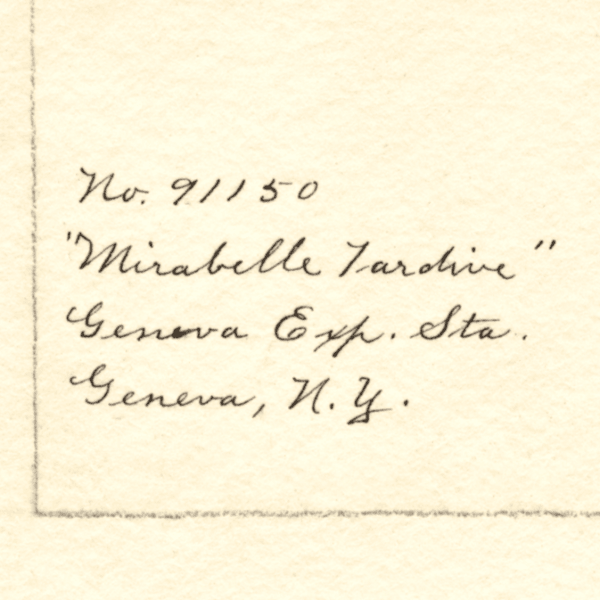 No. 91150
"Mirabelle Tardive"
Geneva Exp. Sta.
Geneva, N.Y.